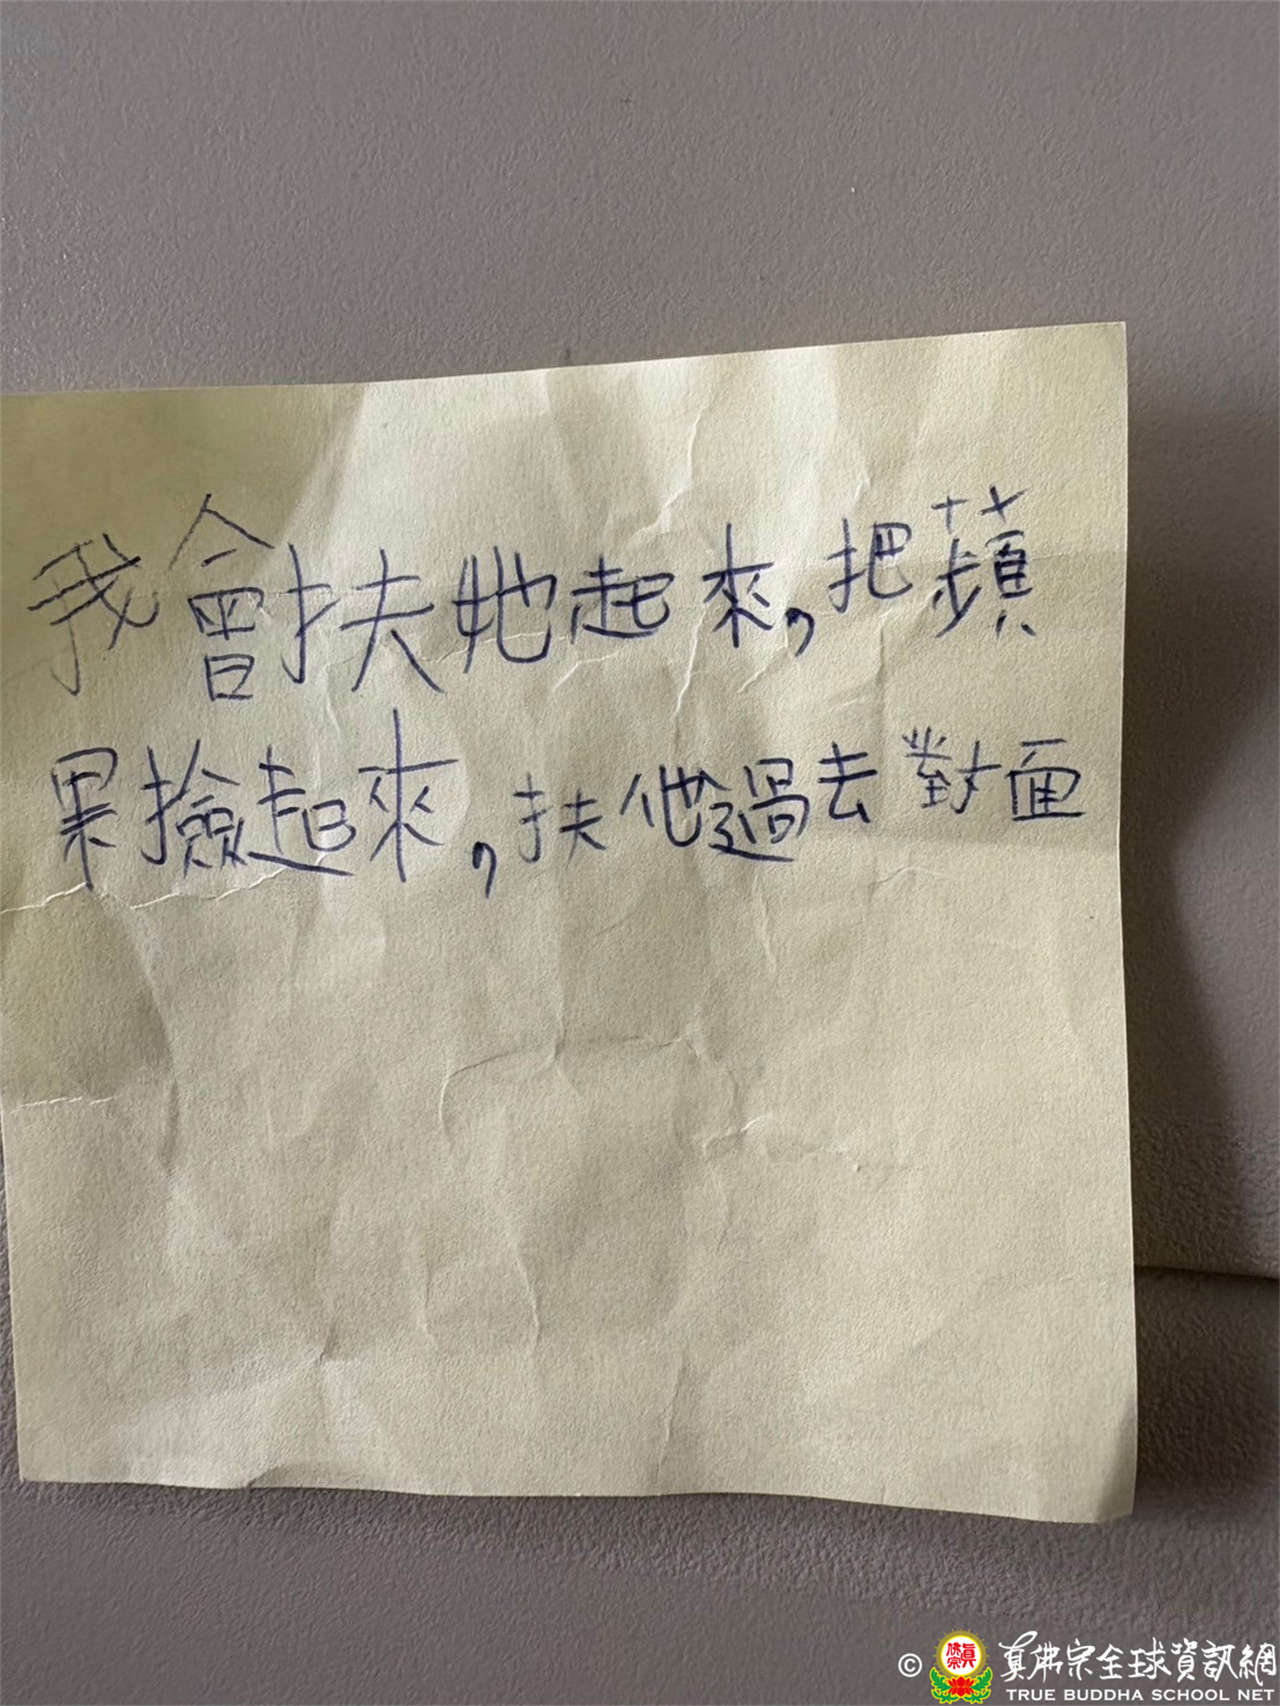 我會扶她起來，把蘋
果撿起來，扶他過去對面
© 真佛宗全球資訊網
TRUE BUDDHA SCHOOL NET